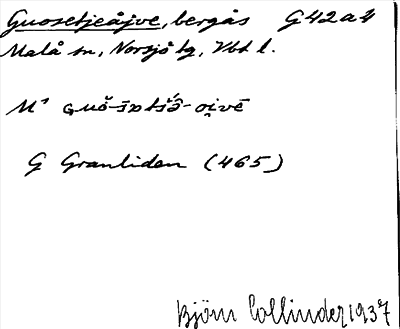 Guosetjeåjve, bergås G42a4
Malå sn, Norsjö tg, Vbt l.
G Granliden (465)
Björn Collinder 1937